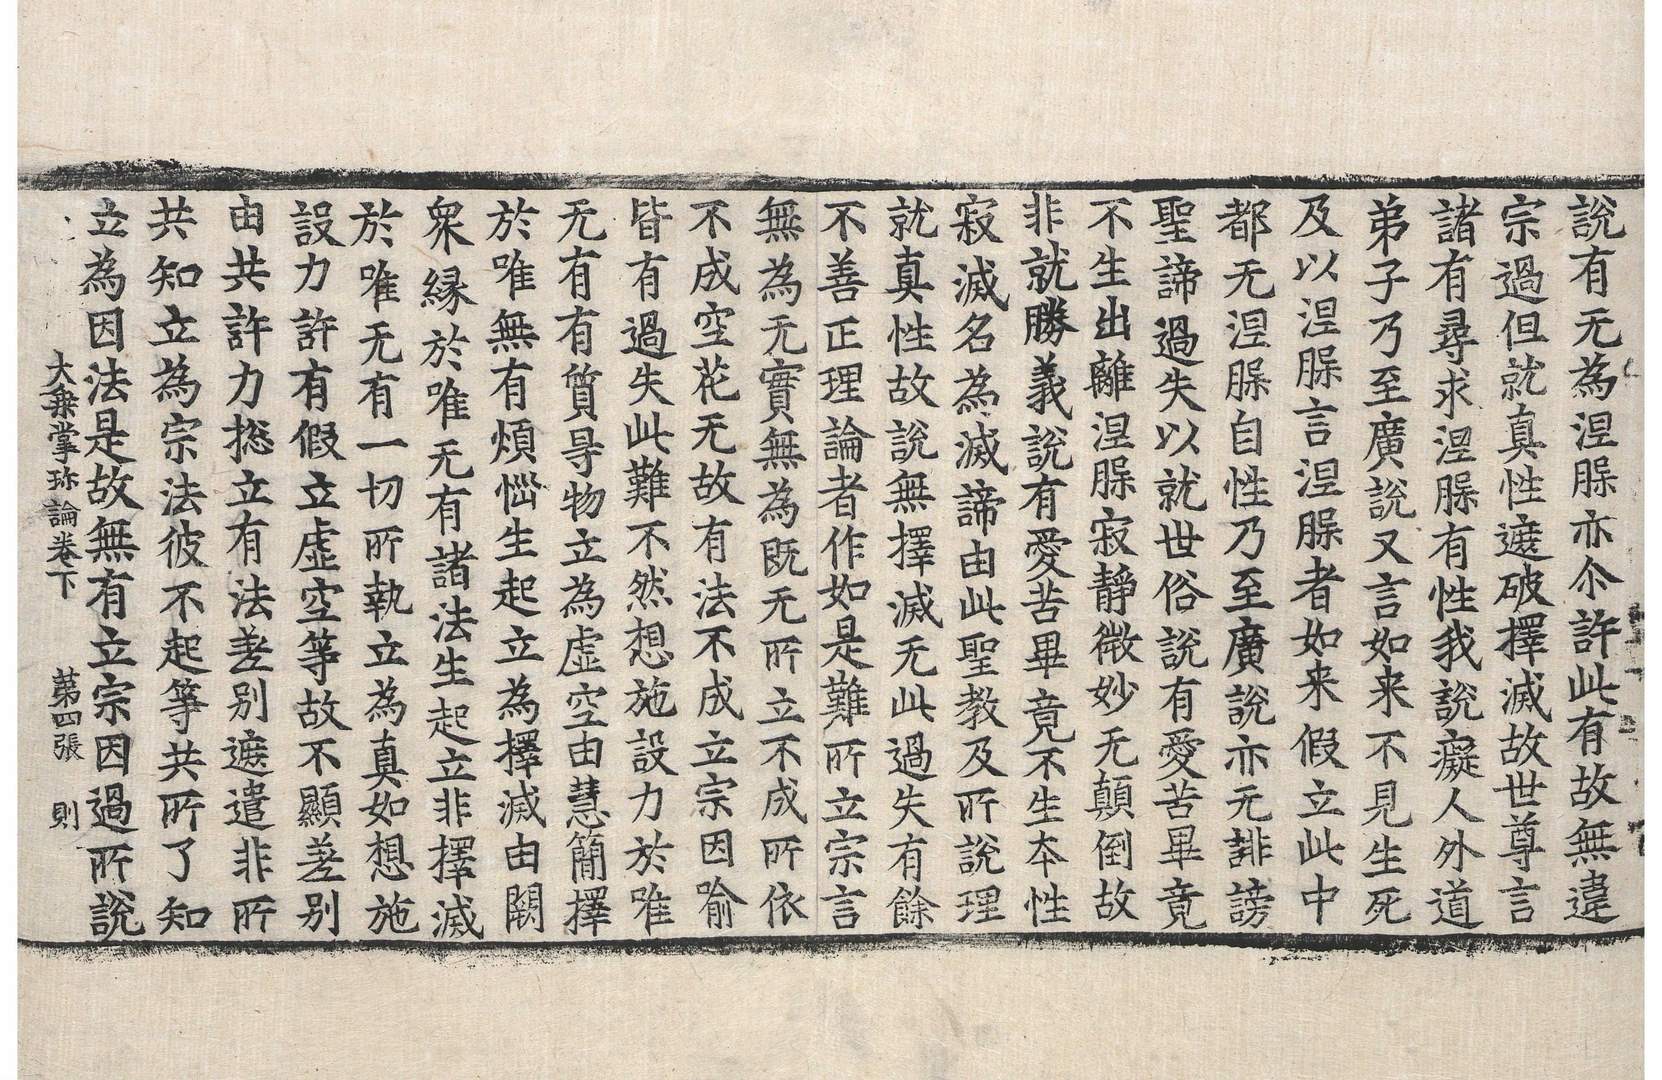 說有无為涅脲亦尒許此有故無違
宗過但就真性遮破擇滅故世尊言
諸有尋求涅脲有性我說癡人外道
弟子乃至廣說又言如来不見生死
及以涅脲言涅脲者如来假立此中
都无涅脲自性乃至廣說亦无誹謗
聖諦過失以就世俗說有愛苦畢竟
不生出離涅脲寂靜微妙无顛倒故
非就勝義說有愛苦畢竟不生夲性
寂滅名為滅諦由此聖教及所說理
就真性故說無擇滅无此過失有餘
不善正理論者作如是難所立宗言
無為无實無為既无所立不成所依
不成空花无故有法不成立宗因喻
皆有過失此難不然想施設力於唯
无有有質导物立為虛空由慧簡擇
於唯無有煩惱生起立為擇滅由闕
衆緣於唯无有諸法生起立非擇滅
於唯无有一切所執立為真如想施
設力許有假立虛空等故不顯差別
由共許力捴立有法差別遮遣非所
共知立為宗法彼不起等共所了知
立為因法是故無有立宗因過所說
大乗掌珎論卷下 第四張 則